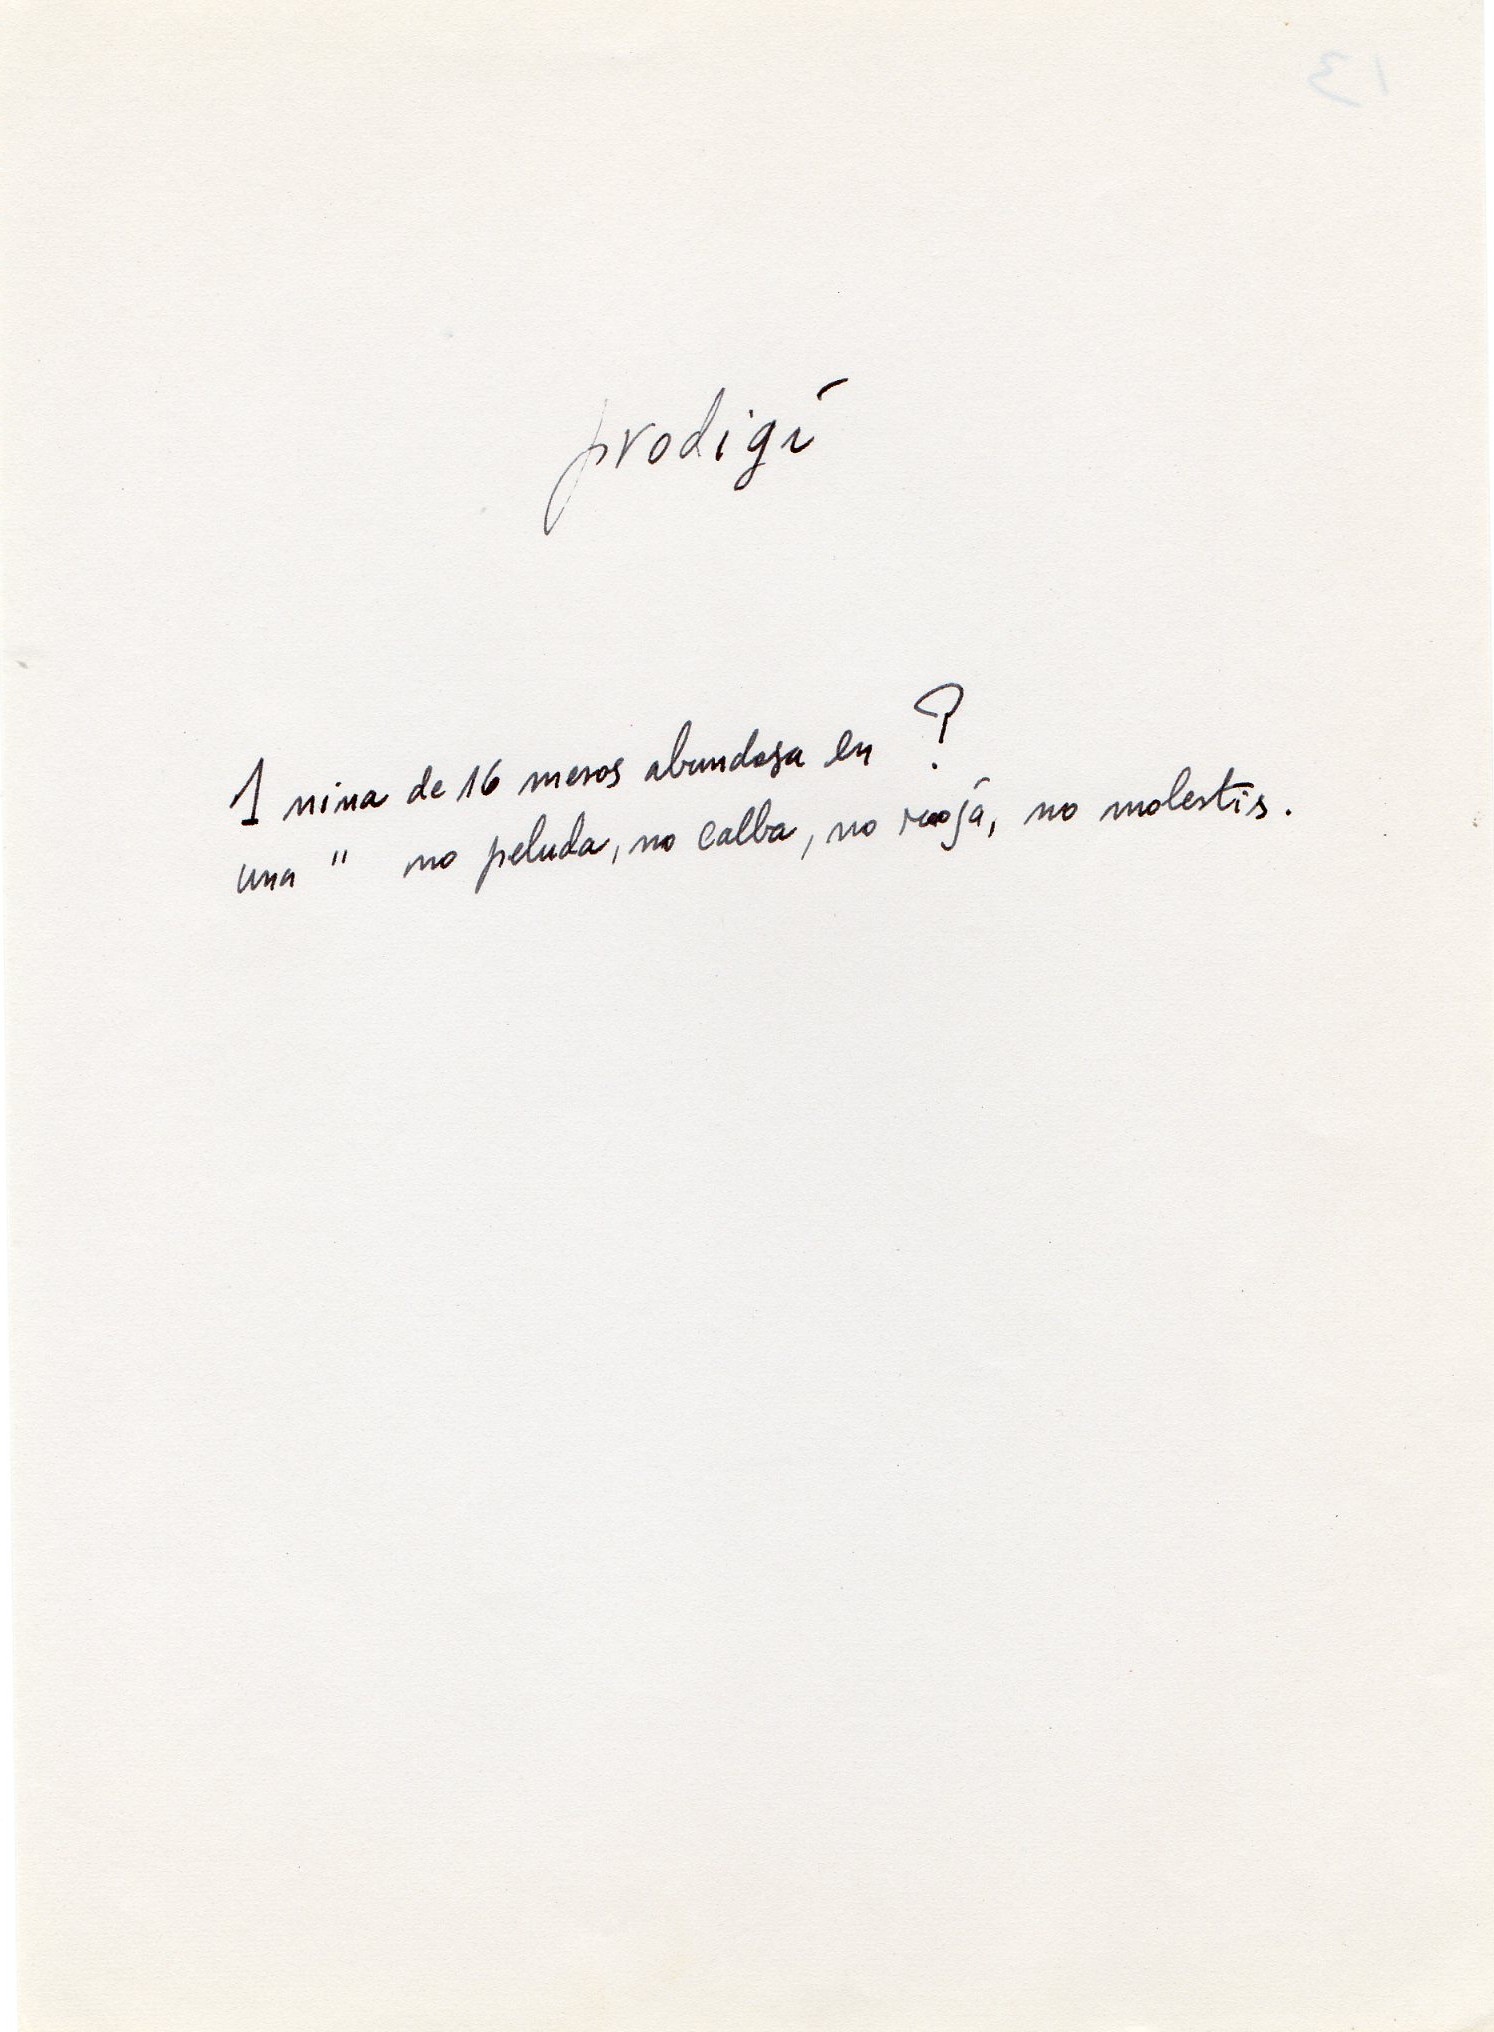 prodigí
1 nina de 16 mesos abundosa en ?
una " no peluda, no calba, no rojá, no molestis.